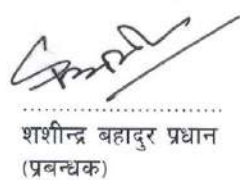 शशीन्द्र बहादुर प्रधान
(प्रबन्धक)